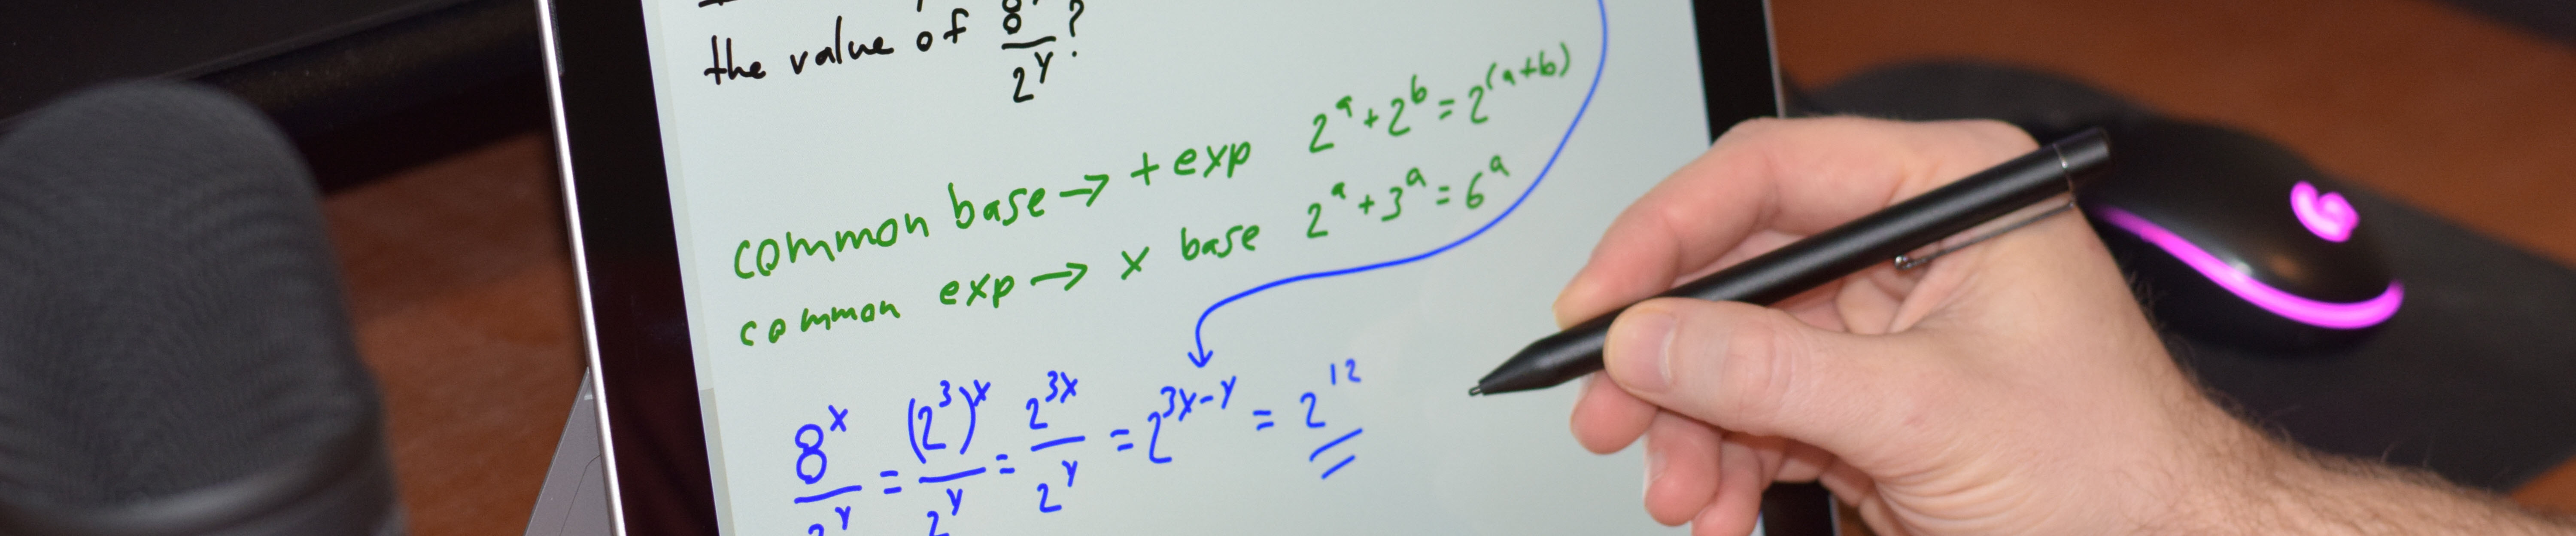 the value of 8/2^y?
common base → + exp 2^a + 2^b = 2^(a+b)
common exp → x base 2^a + 3^a = 6^a
8^x/2^y = (2^3)^x/2^y = 2^3x/2^y = 2^3x-y = 2^12